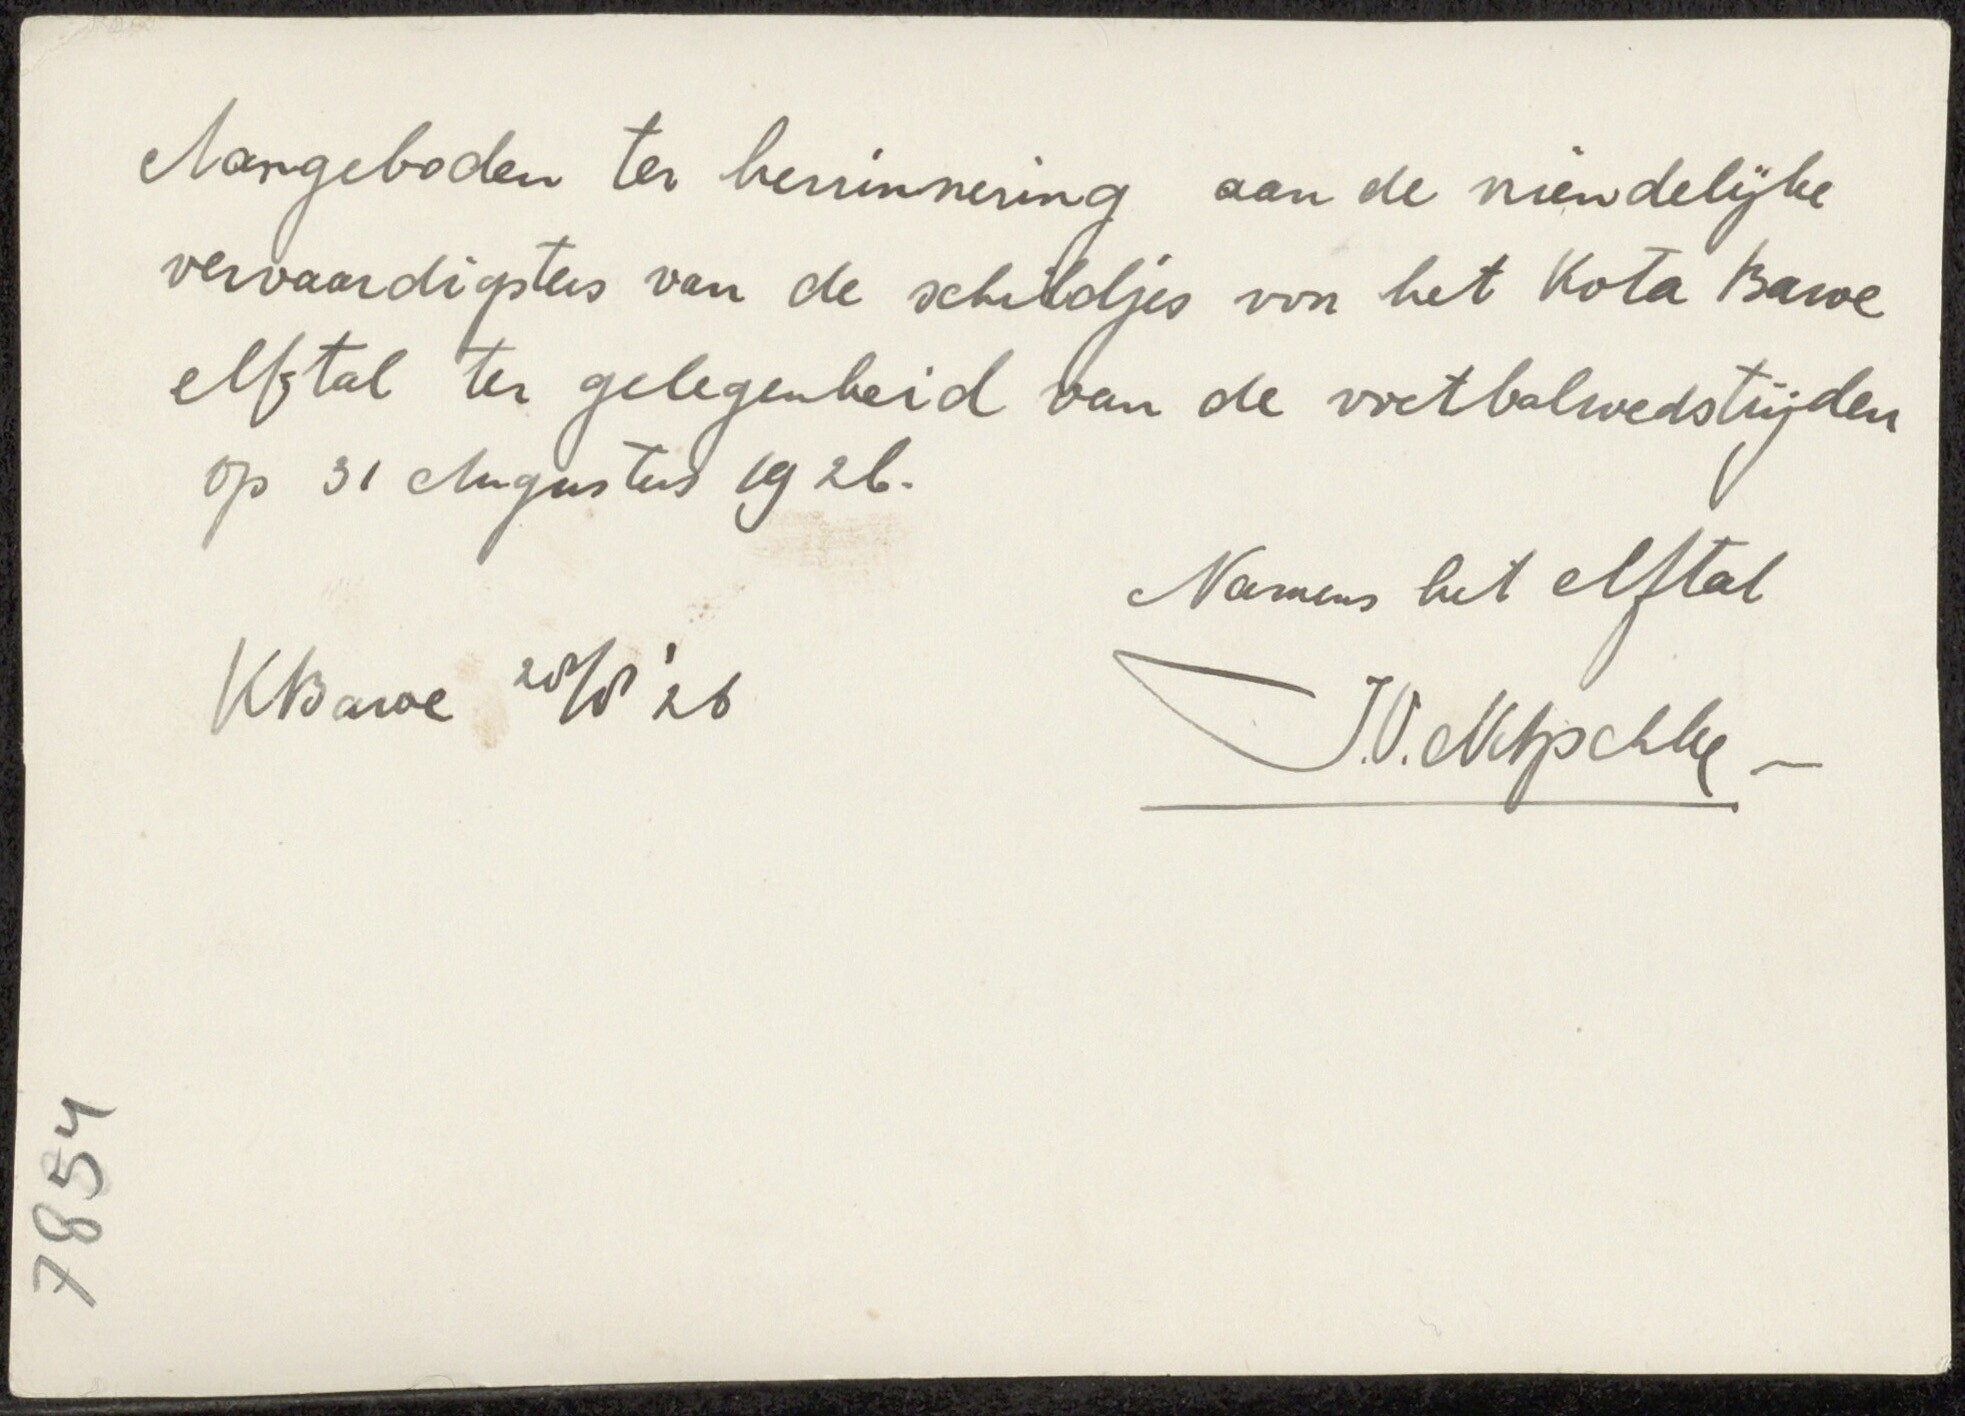 Aangeboden ter herinnering aan de vriendelijke
vervaardigsters van de schildjes van het Kota Baroe
elftal ter gelegenheid van de voetbalwedstrijden
op 31 Augustus 1926.
Namens het elftal
KBaroe 28/8 '26
J.O. Nitzschke
7854